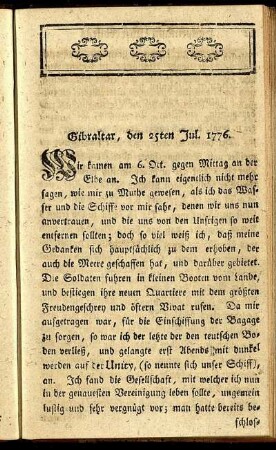 Gibraltar, den 25ten Jul. 1776.
Wir kamen am 6. Oct. gegen Mittag an der
Elbe an. Ich kann eigentlich nicht mehr
sagen, wie mir zu Muthe gewesen, als ich das Was-
ser und die Schiffe vor mir sahe, denen wir uns nun
anvertrauen, und die uns von den Unsrigen so weit
entfernen sollten; doch so viel weiß ich, daß meine
Gedanken sich hauptsächlich zu dem erhoben, der
auch die Meere geschaffen hat, und darüber gebietet.
Die Soldaten fuhren in kleinen Booten vom Lande,
und bestiegen ihre neuen Quartiere mit dem größten
Freudengeschrey und öftern Vivat rufen. Da mir
aufgetragen war, für die Einschiffung der Bagage
zu sorgen, so war ich der letzte der den teutschen Bo-
den verließ, und gelangte erst Abends mit dunkel
werden auf der Unity, (so nennte sich unser Schiff),
an. Ich fand die Gesellschaft, mit welcher ich nun
in der genauesten Vereinigung leben sollte, ungemein
lustig und sehr vergnügt vor; man hatte bereits be-
schlos-